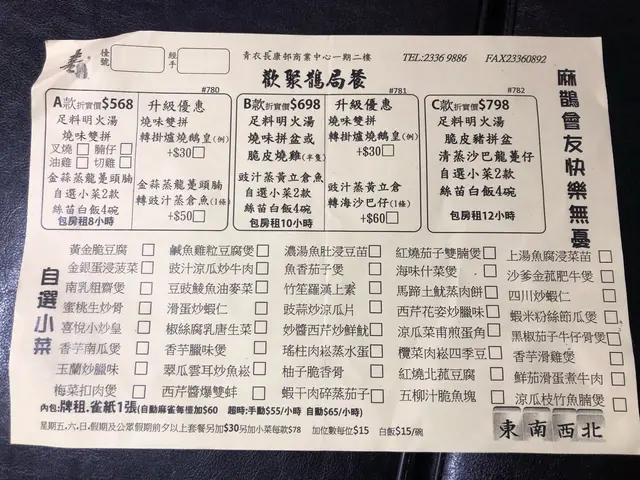 壽
檯號
經手
青衣長康邨商業中心一期二樓
TEL:2336 9886
FAX23360892
歡聚鵲局餐
麻鵲會友快樂無憂
#780
#781
#782
A款折實價$568
足料明火湯
燒味雙拼
叉燒 腩仔
油雞 切雞
金蒜蒸龍躉頭腩
自選小菜2款
絲苗白飯4碗
包房租8小時
升級優惠
燒味雙拼
轉掛爐燒鵝皇(例)
+$30
金蒜蒸龍躉頭腩
轉豉汁蒸倉魚(1條)
+$50
B款折實價$698
足料明火湯
燒味拼盆或
脆皮燒雞(半隻)
豉汁蒸黃立倉魚
自選小菜2款
絲苗白飯4碗
包房租10小時
升級優惠
燒味雙拼
轉掛爐燒鵝皇(例)
+$30
豉汁蒸黃立倉
轉海沙巴仔(1條)
+$60
C款折實價$798
足料明火湯
脆皮豬拼盆
清蒸沙巴龍躉仔
自選小菜2款
絲苗白飯4碗
包房租12小時
自選小菜
黃金脆豆腐
金銀蛋浸菠菜
南乳粗齋煲
蜜桃生炒骨
喜悅小炒皇
香芋南瓜煲
玉蘭炒臘味
梅菜扣肉煲
鹹魚雞粒豆腐煲
豉汁涼瓜炒牛肉
豆豉鯪魚油麥菜
滑蛋炒蝦仁
椒絲腐乳唐生菜
香芋臘味煲
翠瓜雲耳炒魚崧
西芹醬爆雙蚌
濃湯魚肚浸豆苗
魚香茄子煲
竹笙羅漢上素
豉蒜炒涼瓜片
妙醬西芹炒鮮魷
瑤柱肉崧蒸水蛋
柚子脆香骨
蝦干肉碎蒸茄子
紅燒茄子雙腩煲
海味什菜煲
馬蹄土魷蒸肉餅
西芹花姿炒臘味
涼瓜菜甫煎蛋角
欖菜肉崧四季豆
紅燒北菰豆腐
五柳汁脆魚塊
上湯魚腐浸菜苗
沙爹金菰肥牛煲
四川炒蝦仁
蝦米粉絲節瓜煲
黑椒茄子牛仔骨煲
香芋滑雞煲
鮮茄滑蛋煮牛肉
涼瓜枝竹魚腩煲
內包:牌租.雀紙1張(自動麻雀每檯加$60 超時:手動$55/小時 自動$65/小時)
星期五,六,日,假期及公眾假期前夕以上套餐另加$30另加小菜每款$78 加位數每位$15 白飯$15/碗
東南西北